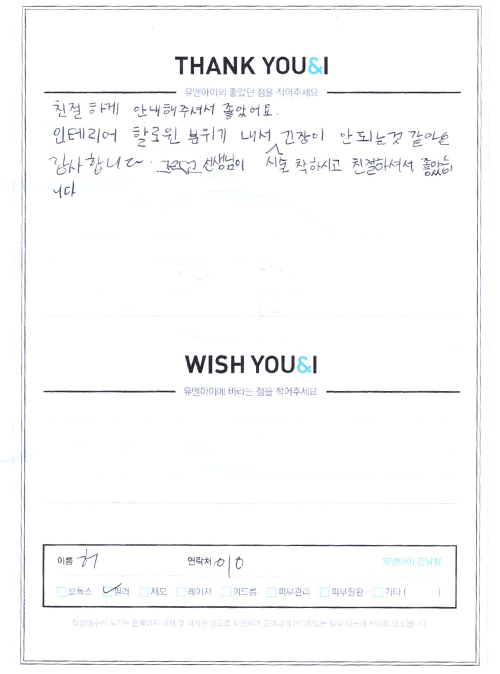 THANK YOU&I
유앤아이의 좋았던 점을 적어주세요
친절하게 안내해주셔서 좋았어요.
인테리어 할로윈 분위기 내서 긴장이 안되는것 같아요
감사합니다. 그리고 선생님이 시술 착하시고 친절하셔서 좋았습
니다
WISH YOU&I
유앤아이에 바라는 점을 적어주세요
이름 허 연락처 010 유앤아이 강남점
보톡스 필러 제모 레이저 여드름 피부관리 피부질환 기타 ( )